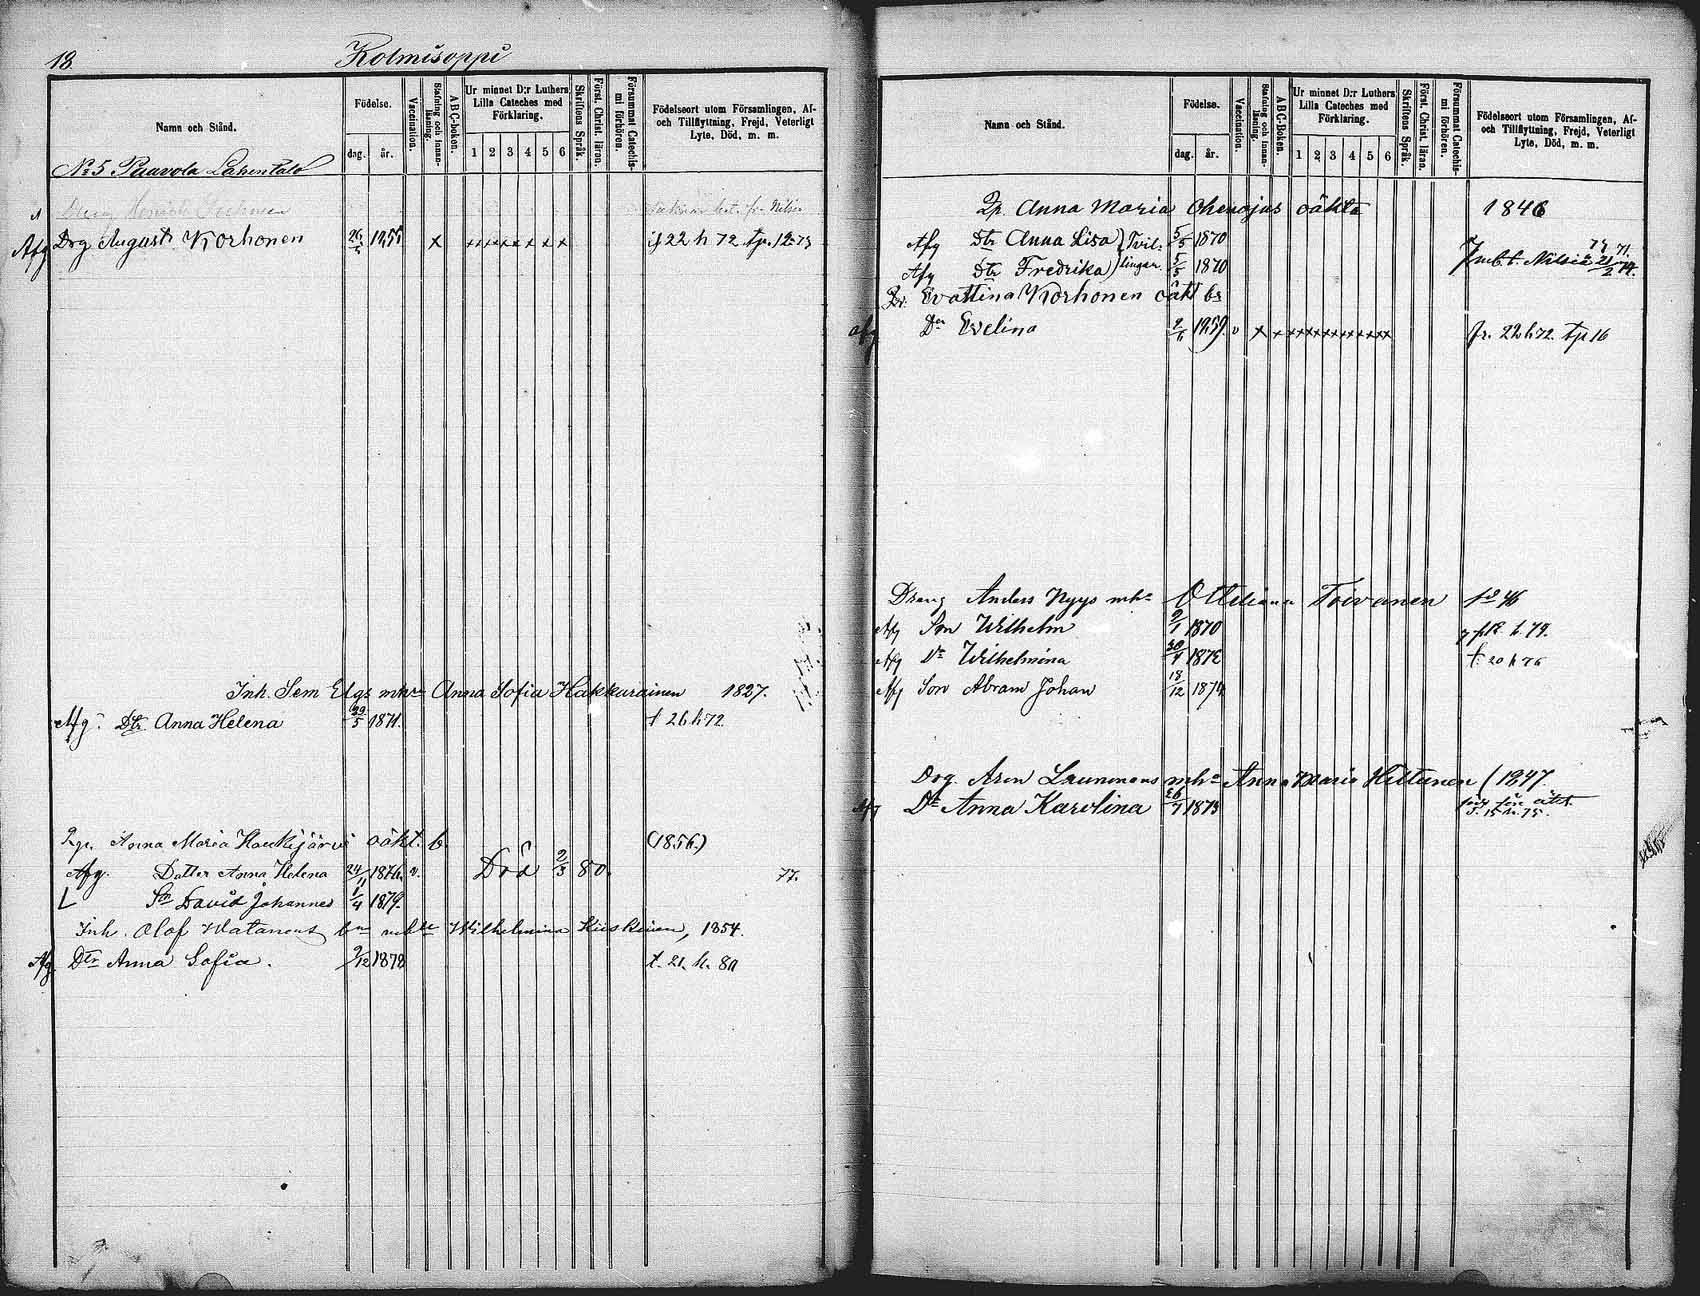 18.
Kolmisoppi
Namn och Stånd.
Födelse.
dag.
år.
Vaccination.
Stafning och innan-läsning.
A B C-boken.
Ur minnet D:r Luthers Lilla Cateches med Förklaring.
1 2 3 4 5 6
Skriftens Språk.
Först. Christ. läran.
Försummat Catechis-mi förhören.
Födelseort utom Församlingen, Af- och Tillflyttning, Frejd, Veterligt Lyte, Död, m. m.
No 5 Paavola Lahentalo
Afg Drg August Korhonen 26/5 1855 x xxxxxxxx 22 h 72 tp. 12 73
Inh. Sem Elgs mhu Anna Sofia Hakkarainen 1827.
Afg. Dtr. Anna Helena 29/5 1871. t 26 h 72
Pig. Anna Maria Haukijärvi oäkt. b. (1856.)
Afg. Dotter Anna Helena 24/11 1876. v. Död 2/3 80. 77.
L Sn David Johannes 1/4 1879.
Inh. Olof Watanens bn mhu Wilhelmina Kiiskinen, 1854.
Afg Dtr Anna Sofia. 9/12 1878 t. 21. h. 80
Namn och Stånd.
Födelse.
dag.
år.
Vaccination.
Stafning och innan-läsning.
A B C-boken.
Ur minnet D:r Luthers Lilla Cateches med Förklaring.
1 2 3 4 5 6
Skriftens Språk.
Först. Christ. läran.
Försummat Catechis-mi förhören.
Födelseort utom Församlingen, Af- och Tillflyttning, Frejd, Veterligt Lyte, Död, m. m.
Pp. Anna Maria Ohenojas oäkta 1846
Afg Dtr Anna Lisa } Tvil- 5/5 1870
Afg Dtr Fredrika } lingar. 5/5 1870 Nilsiä 21/2
Evastina Korhonen oäkt bs
afg Dr Evelina 9/6 1859. v x x xxxxxxxxxxx fr. 22 h 72. tp 16
Dreng Anders Nyys mhu Ottiliana Toivanen 46
Afg Son Wilhelm 9/1 1870 h. 79.
Afg Dr Wilhelmina 30/4 1872 t. 20 h 76
Afg Son Abram Johan 18/12 1874
Drg. Aron Launonens mhu Anna Maria Hiltunen (1847
Afg Dr Anna Karolina 26/7 1873 för äkt.
15 h. 75.